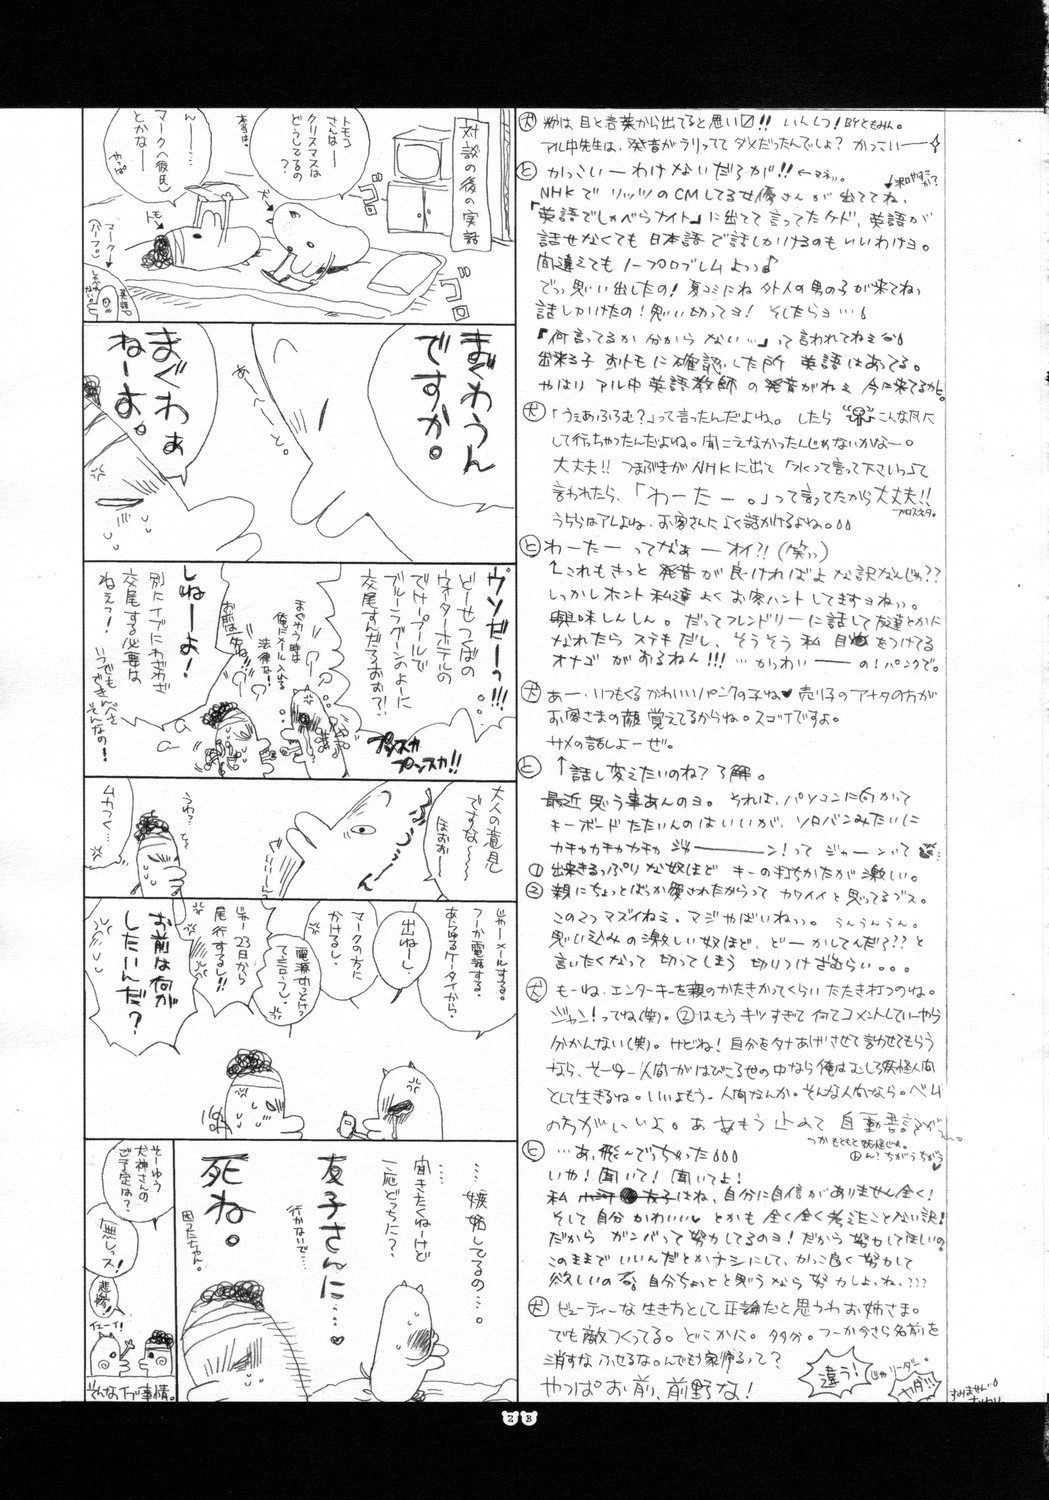 対談の後の実話
トモコ
さんは
クリスマスは
どうしてるの
？
本当は。
ん——
マーク（彼氏）
とかな——
やっぱ
ゴロ
ゴロ
犬
トモ
マーク
まぐわうん
ですか。
あ〜〜〜と。
まぐわぁ
ねーよ。
ウソだーっ!!!
どーせつばの
ウオーターホテルの
でけープールで
ブルーフラグーンのよーに
交尾すんだろおぉ?!
まぐわう時は
俺にメール入れる
法律な！
お前は死ね!!
しねーよ！
別にイブにわざわざ
交尾する必要は
ねぇっ！
いつでも
できんべそ
そんなの！
プンスカ
プンスカ!!
大人の意見
ですな〜〜
ほおお——
うわ？
ムカつく…
じゃーメールする。
つーか電話する。
あらゆるケータイから。
出ねーし。
マークの方に
かけるし。
電源切っとけっ
じゃー23日から
尾行するし!!
お前は何が
したいんだ？
…嫉妬してるの…。
…聞きたくねーけど
一応どっちに？
友子さんに…♥
行かないで…
死ね。
そーゆう
犬神さんの
ご予定は？
無しッス！
悲惨！
イエーイ！
そんなイブ事情。
犬 粉は目と言葉から出てると思い〼!! いんしつ！BYともみん。
アル中先生は、発音がうりってて ダメだったんでしょ？ かっこいー——
と かっこいーわけないだろが!!
NHKで リッツのCMしてる女優さんが 出ててね、
「英語でしゃべらナイト」に出てて言ってたケド、英語が
話せなくても 日本語で話しかけるのもいいわけヨ。
間違えても ノープロブレムよっ♪
でっ思い出したの！夏コミにね 外人の男の子が来てねっ
話しかけたの！思い切ってヨ！ そしたらヨ…
『何言ってるか 分からない…』って言われてねぇ
出来る子 おトモに確認した所 英語はあってる。
やはり アル中英語教師 の発音がねぇ 今に来てるかと。
犬 「うぇあふろむ？」って言ったんだよね。 したら こんな風に
して行っちゃったんだよね。聞こえなかったんじゃないかなー。
大丈夫!! つまぶきがNHKに出て「水って言って下さいっ」って
言われたら、「わーたー。」って言ってたから大丈夫!!
うちらはアレよね、お客さんによく話かけるよね。
と わーたー ってなぁー オイ?! (笑っ)
↑これもきっと 発音が 良ければよな訳なんじゃ??
しっかしホント 私達 よく お客ハント してますヨねっ。
興味しんしん。 だってフレンドリーに話して友達とかに
なれたら ステキだし、そうそう 私 目をつけてる
オナゴ がおるねん!!! … かっわいー——の！パンクで。
犬 あー、いつもくるかわいい！パンクの子ね♥ 売り子のアナタの方が
お客さまの顔 覚えてるからね。スゴイですよ。
サメの話しよーぜ。
と ↑話し変えたいのね？了解。
最近 思う事あんのヨ。それは、パソコンに向かって
キーボード たたいんのはいいが、ソロバンみたいに
カチャカチャカチャカチャ ジャー——ン！って ジャーンって
① 出来るっぷりな奴ほど キーの打ちかたが激しい。
② 親にちょっとばっか愛されたからって カワイイと思ってるブス。
この2つ マズイねぇ、マジやばいねっ。 うんうんうん。
思い込みの激しい奴ほど、どーかしてんだ??と
言いたくなって 切ってしまう 切りつけざむらい。。。
犬 もーね、エンターキーを親のかたきかってくらいたたき打つのね。
ジャン！ってね(笑)。②はもう キツすぎて何てコメントしていーやら
分かんない(笑)。サドね！自分をタナあげさせて言わせてもらう
なら、そーゆー人間がはびこる世の中なら俺はむしろ妖怪人間
として生きるね。いいよもう、人間なんか。そんな人間なら。ベム
の方がいいよ。あ あもう 止めて 自動書記が
つかもともと妖怪じゃ。
ん？ちがうちがう
と …あ、飛んでちゃった
いや！聞いて！聞いてよ！
私 友子はね、自分に自信がありません全く！
そして自分 かわいい♥ とかも 全く全く考えたことない訳！
だから ガンバって努力してるのヨ！だから 努力して欲しいの。
このままで いいんだとかナシにして、かっこ良く努力して
欲しいの。自分ちょっとと思うなら 努力しよ、ね、???
犬 ビューティーな 生き方として正論だと思うわ お姉さま。
でも敵つくってる。どこかに。多分。つーか今さら名前を
消すな ふせるな。んでもう家帰るって？
やっぱお前、前野な！
違う！
じゃ リーダー。
ヤダ!!!
すみません
23